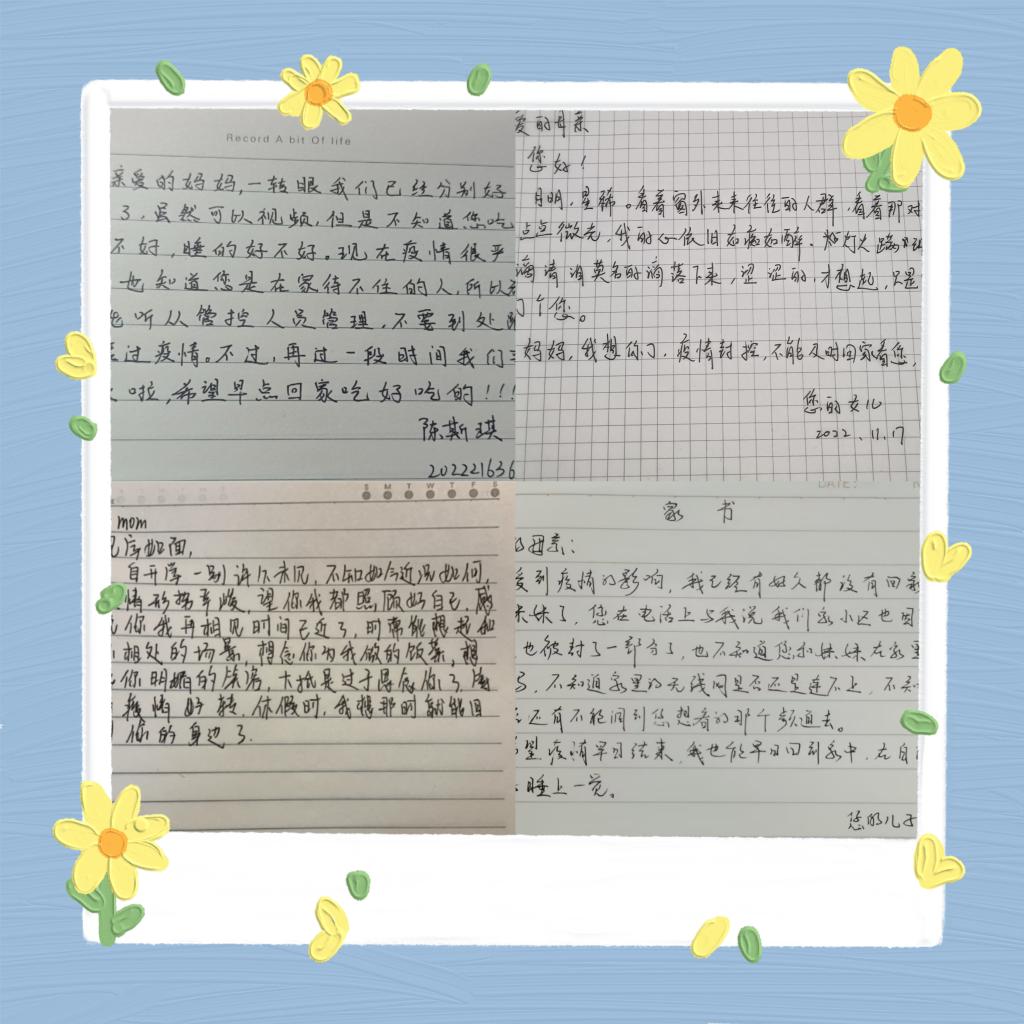 Record A bit Of life
亲爱的妈妈,一转眼我们已经分别好
了,虽然可以视频,但是不知道您吃
不好,睡的好不好。现在疫情很严
也知道您是在家待不住的人,所以
听从管控人员管理,不要到处
过疫情。不过,再过一段时间我们
啦,希望早点回家吃好吃的!!!
陈斯琪
202221636
爱的母亲
您好!
月明,星稀。看着窗外来来往往的人群,看着那对
点点微光,我的心依旧如痴如醉.
滴清泪莫名的滴落下来,涩涩的,才想起,只是
了个您。
妈妈,我想你了,疫情封控,不能及时回家看您,
您的女儿
2022.11.17
S M T W T F S
mom
见字如面,
自开学一别许久未见,不知如今近况如何,
情形势严峻,望你我都照顾好自己,感
你我再相见时间已近了,时常能想起
相处的场景,想念你为我做的饭菜,想
你明媚的笑容,大抵是过于思念你了,
疫情好转,休假时,我想那时就能回
你的身边了.
DATE:
家书
母亲:
受到疫情的影响,我已经有好久都没有回家
妹妹了,您在电话上与我说我们家小区也因
也被封了一部分了,也不知道您和妹妹在家里
了,不知道家里的无线网是否还是连不上,不知
还有不能调到您想看的那个频道去。
望疫情早日结束,我也能早日回到家中,在自
睡上一觉。
您的儿子